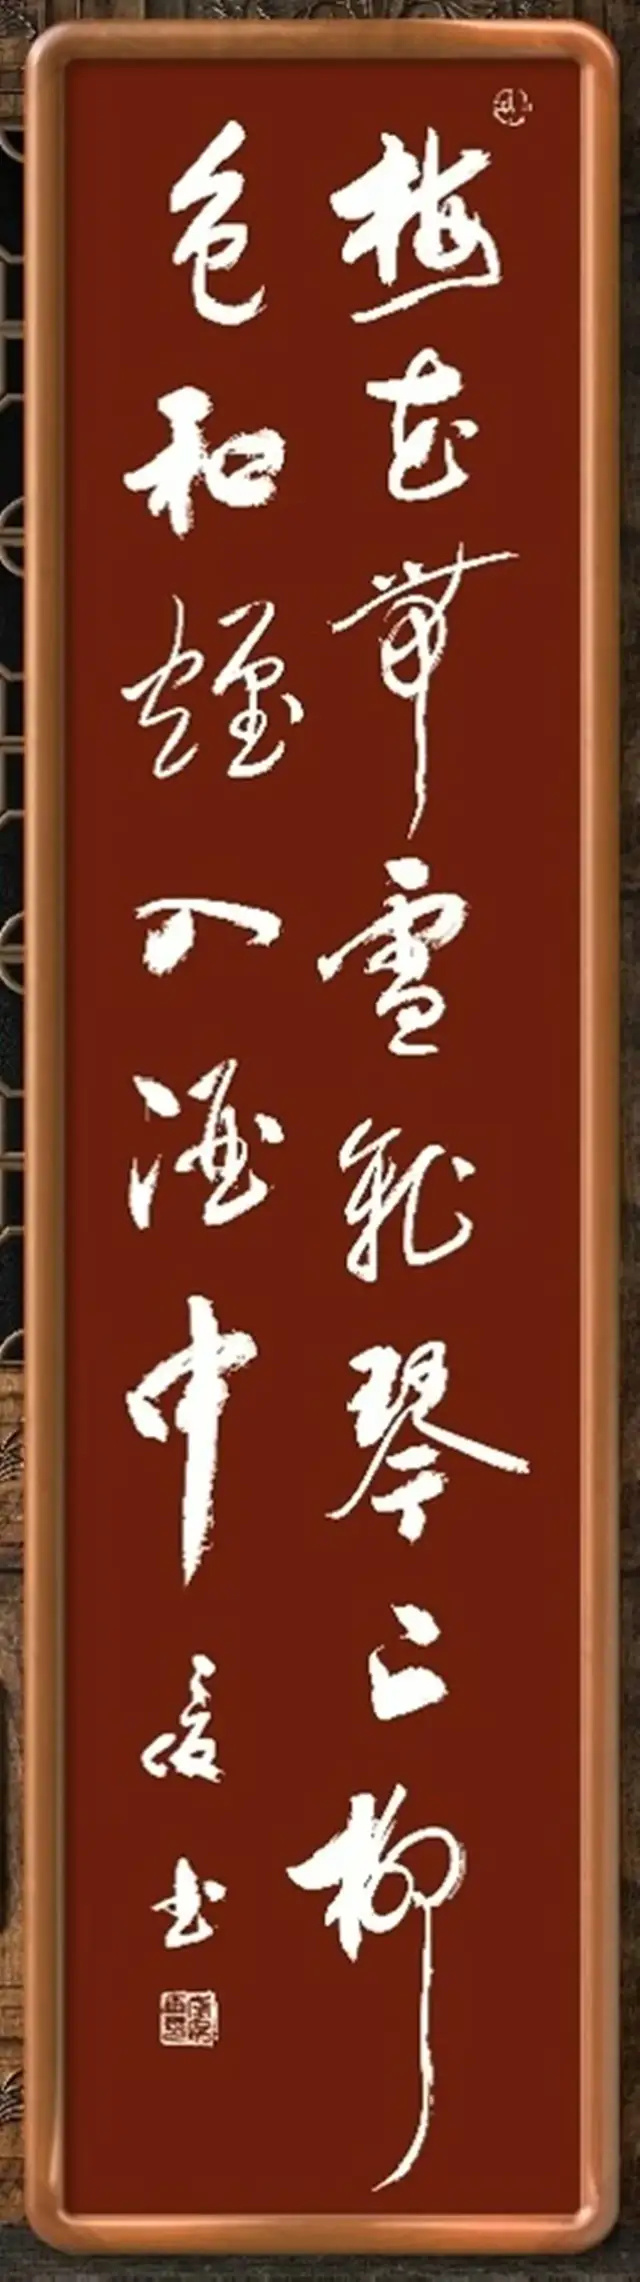 梅花带雪飞琴上柳
色和烟入酒中
书